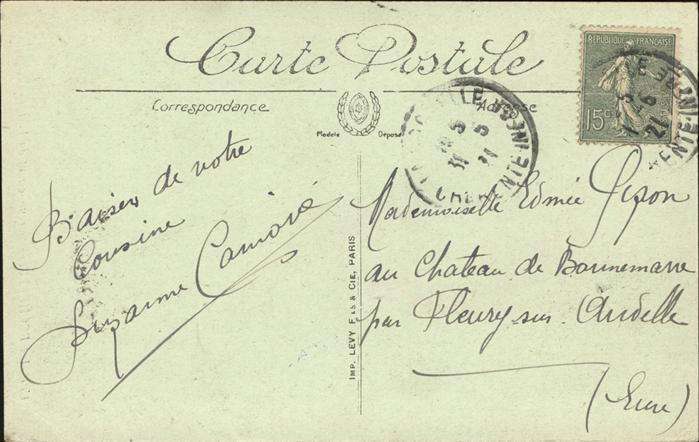 Carte Postale
Correspondance
Adresse
Modèle Déposé
REPUBLIQUE FRANÇAISE
15c
Baisers de votre
Cousine
Suzanne
IMP. LEVY FILS & CIE, PARIS
Mademoiselle Edmée
au Chateau de Bonnemare
par Fleury sur Andelle
(Eure)